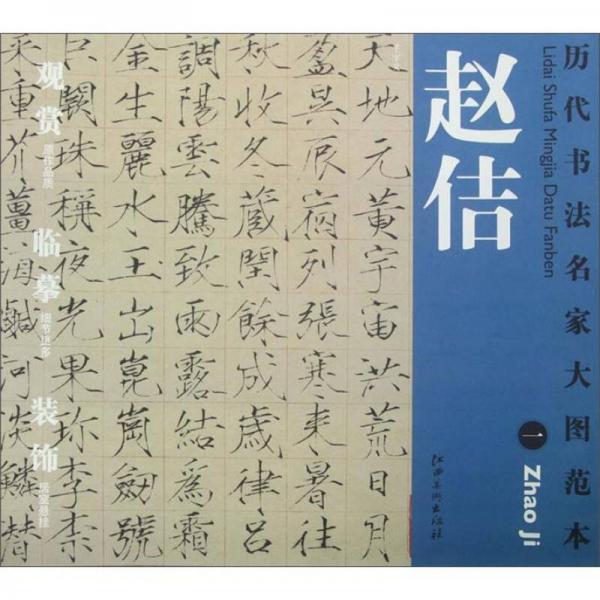 历代书法名家大图范本
Lidai Shufa Mingjia Datu Fanben
赵佶
一
Zhao Ji
江西美术出版社
天地元黄宇宙洪荒日月
盈昃辰宿列張寒来暑往
秋收冬蔵閏餘成歲律吕
調陽雲騰致雨露結為霜
金生麗水玉出崑崗劒號
巨闕珠稱夜光果珍李柰
菜重芥薑海鹹河淡鱗潜
观赏
原作品质
临摹
细节更多
装饰
居室悬挂